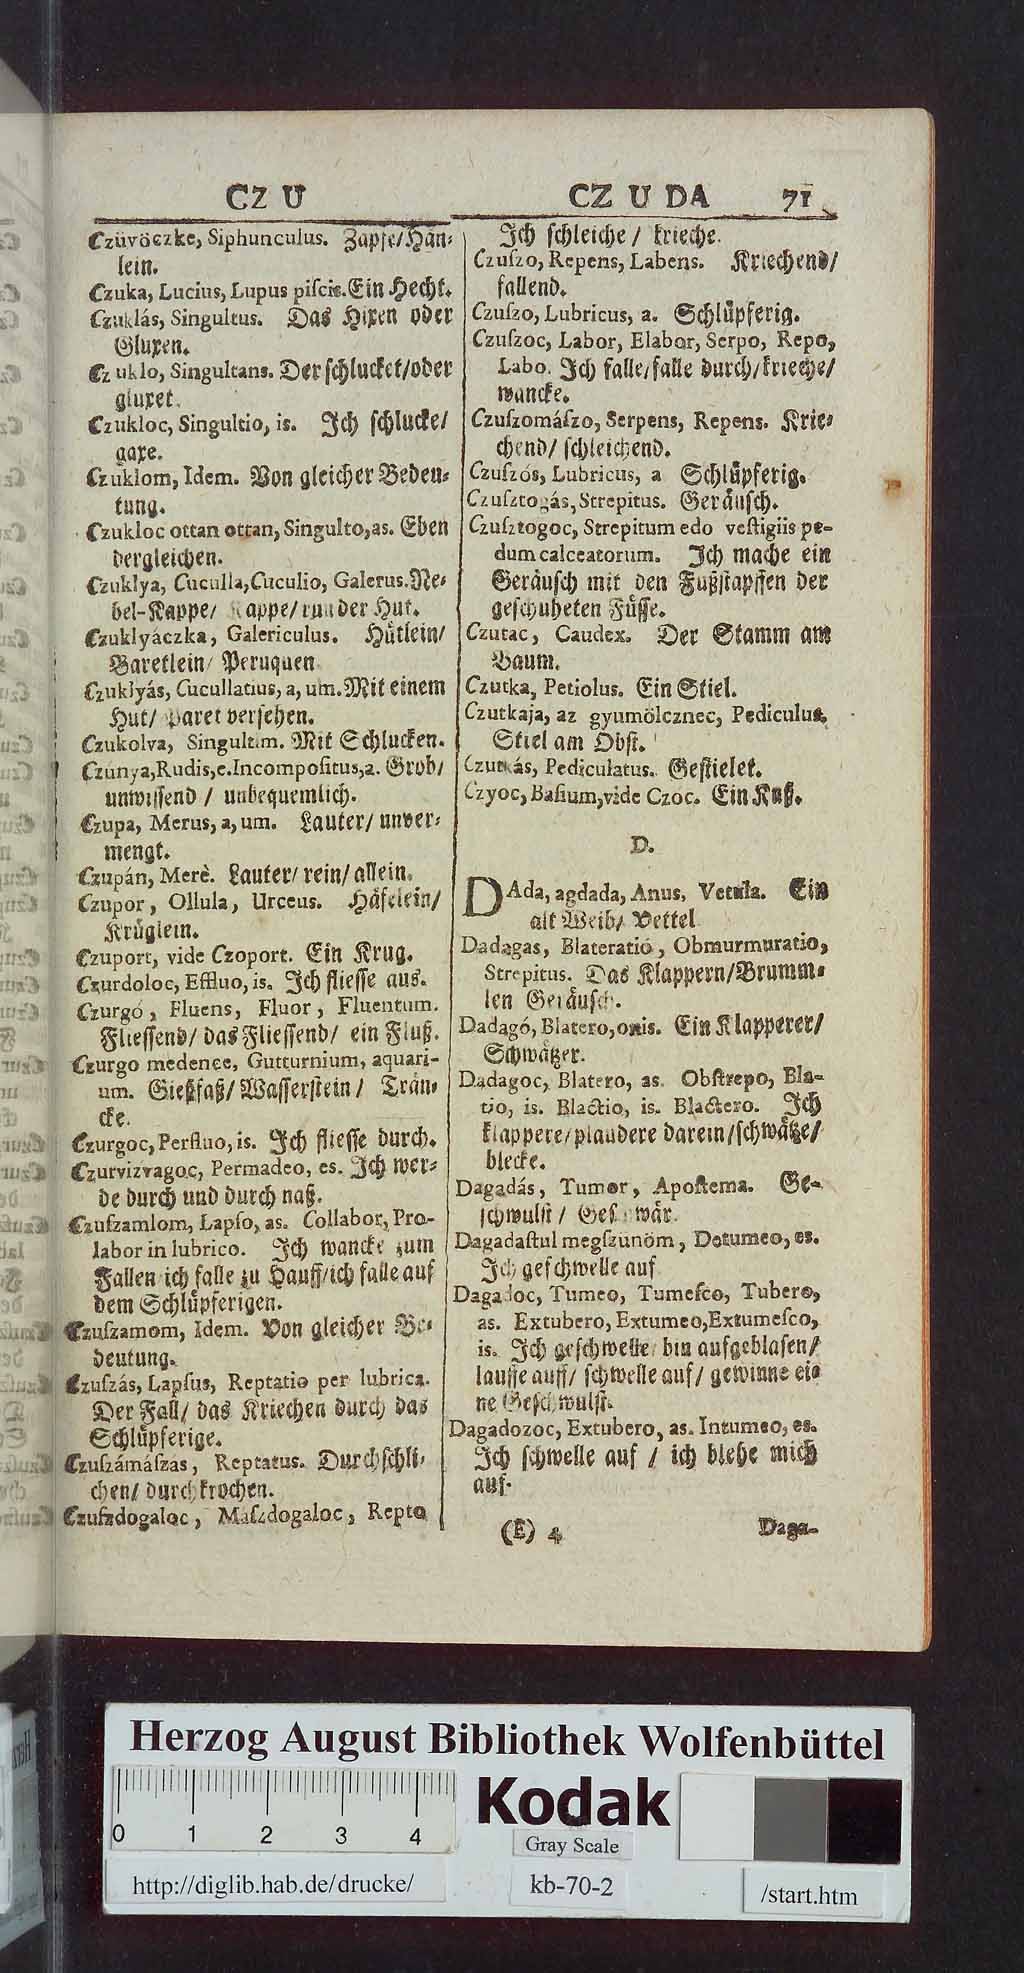 CZ U
Czüvöczke, Siphunculus. Zapfe/Hän-
lein.
Czuka, Lucius, Lupus piſcis. Ein Hecht.
Czuklás, Singultus. Das Hixen oder
Gluxen.
Czuklo, Singultans. Der ſchlucket/oder
gluxet.
Czukloc, Singultio, is. Ich ſchlucke/
gaxe.
Czuklom, Idem. Von gleicher Bedeu-
tung.
Czukloc ottan ottan, Singulto, as. Eben
dergleichen.
Czuklya, Cuculla, Cuculio, Galerus. Ne-
bel-Kappe/ Kappe/ runder Hut.
Czuklyáczka, Galericulus. Hütlein/
Baretlein/ Peruquen
Czuklyás, Cucullatius, a, um. Mit einem
Hut/ Paret verſehen.
Czukolva, Singultim. Mit Schlucken.
Czunya, Rudis, e. Incompoſitus, a. Grob/
unwiſſend / unbequemlich.
Czupa, Merus, a, um. Lauter/ unver-
mengt.
Czupán, Merè. Lauter/ rein/ allein.
Czupor, Ollula, Urceus. Häfelein/
Krüglein.
Czuport, vide Czoport. Ein Krug.
Czurdoloc, Effluo, is. Ich flieſſe aus.
Czurgó, Fluens, Fluor, Fluentum.
Flieſſend/ das Flieſſend/ ein Fluß.
Czurgo medence, Gutturnium, aquari-
um. Gießfaß/ Waſſerſtein/ Trän-
cke.
Czurgoc, Perfluo, is. Ich flieſſe durch.
Czurvizvagoc, Permadeo, es. Ich wer-
de durch und durch naß.
Czuſzamlom, Lapſo, as. Collabor, Pro-
labor in lubrico. Ich wancke zum
Fallen/ich falle zu Hauff/ich falle auf
dem Schlüpferigen.
Czuſzamom, Idem. Von gleicher Be-
deutung.
Czuſzás, Lapſus, Reptatio per lubrica.
Der Fall/ das Kriechen durch das
Schlüpferige.
Czuſzámáſzás, Reptatus. Durchſchli-
chen/ durchkrochen.
Czuſzdogaloc, Máſzdogaloc, Repto
CZ U DA 71
Ich ſchleiche / krieche.
Czuſzo, Repens, Labens. Kriechend/
fallend.
Czuſzo, Lubricus, a. Schlüpferig.
Czuſzoc, Labor, Elabor, Serpo, Repo,
Labo. Ich falle/falle durch/krieche/
wancke.
Czuſzomáſzo, Serpens, Repens. Krie-
chend/ ſchleichend.
Czuſzós, Lubricus, a Schlüpferig.
Czuſztogás, Strepitus. Geräuſch.
Czuſztogoc, Strepitum edo veſtigiis pe-
dum calceatorum. Ich mache ein
Geräuſch mit den Fußſtapffen der
geſchuheten Füſſe.
Czutac, Caudex. Der Stamm am
Baum.
Czutka, Petiolus. Ein Stiel.
Czutkaja, az gyumölcznec, Pediculus,
Stiel am Obſt.
Czutkás, Pediculatus. Geſtielet.
Czyoc, Baſium, vide Czoc. Ein Kuß.
D.
DAda, agdada, Anus, Vetula. Ein
alt Weib/ Vettel
Dadagas, Blateratió, Obmurmuratio,
Strepitus. Das Klappern/Brumm-
len Geräuſch.
Dadagó, Blatero, onis. Ein Klapperer/
Schwätzer.
Dadagoc, Blatero, as. Obſtrepo, Bla-
tio, is. Blactio, is. Blactero. Ich
klappere/plaudere darein/ſchwätze/
blecke.
Dagadás, Tumor, Apoſtema. Ge-
ſchwulſt / Geſchwär.
Dagadaſtul megſzunöm, Detumeo, es.
Ich geſchwelle auf
Dagadoc, Tumeo, Tumeſco, Tubero,
as. Extubero, Extumeo, Extumeſco,
is. Ich geſchwelle/ bin aufgeblaſen/
lauffe auff/ ſchwelle auf/ gewinne ei-
ne Geſchwulſt.
Dagadozoc, Extubero, as. Intumeo, es.
Ich ſchwelle auf / ich blehe mich
auf.
(E) 4 Daga-
Herzog August Bibliothek Wolfenbüttel
0 1 2 3 4
Kodak
Gray Scale
http://diglib.hab.de/drucke/ kb-70-2 /start.htm